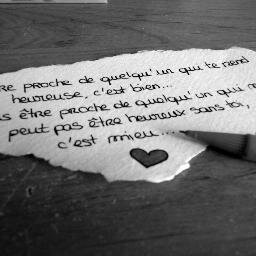 re proche de quelqu'un qui te rend
heureuse, c'est bien...
s être proche de quelqu'un qui n
peut pas être heureux sans toi,
c'est mieu...